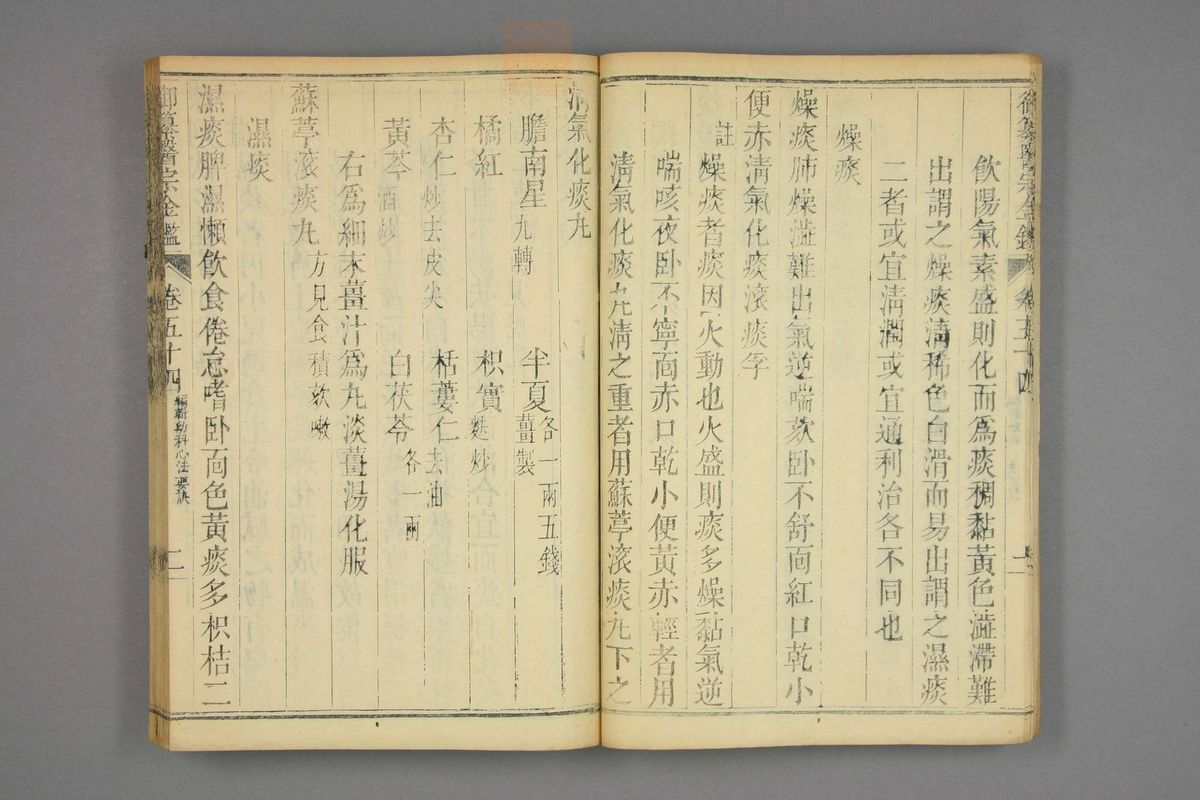 飲陽氣素盛則化而爲痰稠黏黃色澁滯難
出謂之燥痰淸稀色白滑而易出謂之濕痰
二者或宜淸潤或宜通利治各不同也
燥痰
燥痰肺燥澁難出氣逆喘欬卧不舒面紅口乾小
便赤淸氣化痰滾痰孚
註 燥痰者痰因火動也火盛則痰多燥黏氣逆
喘咳夜卧不寧面赤口乾小便黃赤輕者用
淸氣化痰丸淸之重者用蘇葶滾痰丸下之
淸氣化痰丸
膽南星九轉 半夏薑製各一兩五錢
橘紅 枳實麩炒
杏仁炒去皮尖 栝蔞仁去油
黃芩酒炒 白茯苓各一兩
右爲細末薑汁爲丸淡薑湯化服
蘇葶滾痰丸方見食積欬嗽
濕痰
濕痰脾濕懶飲食倦怠嗜卧面色黃痰多枳桔二
御纂醫宗金鑑 卷五十四 編輯幼科心法要訣 二